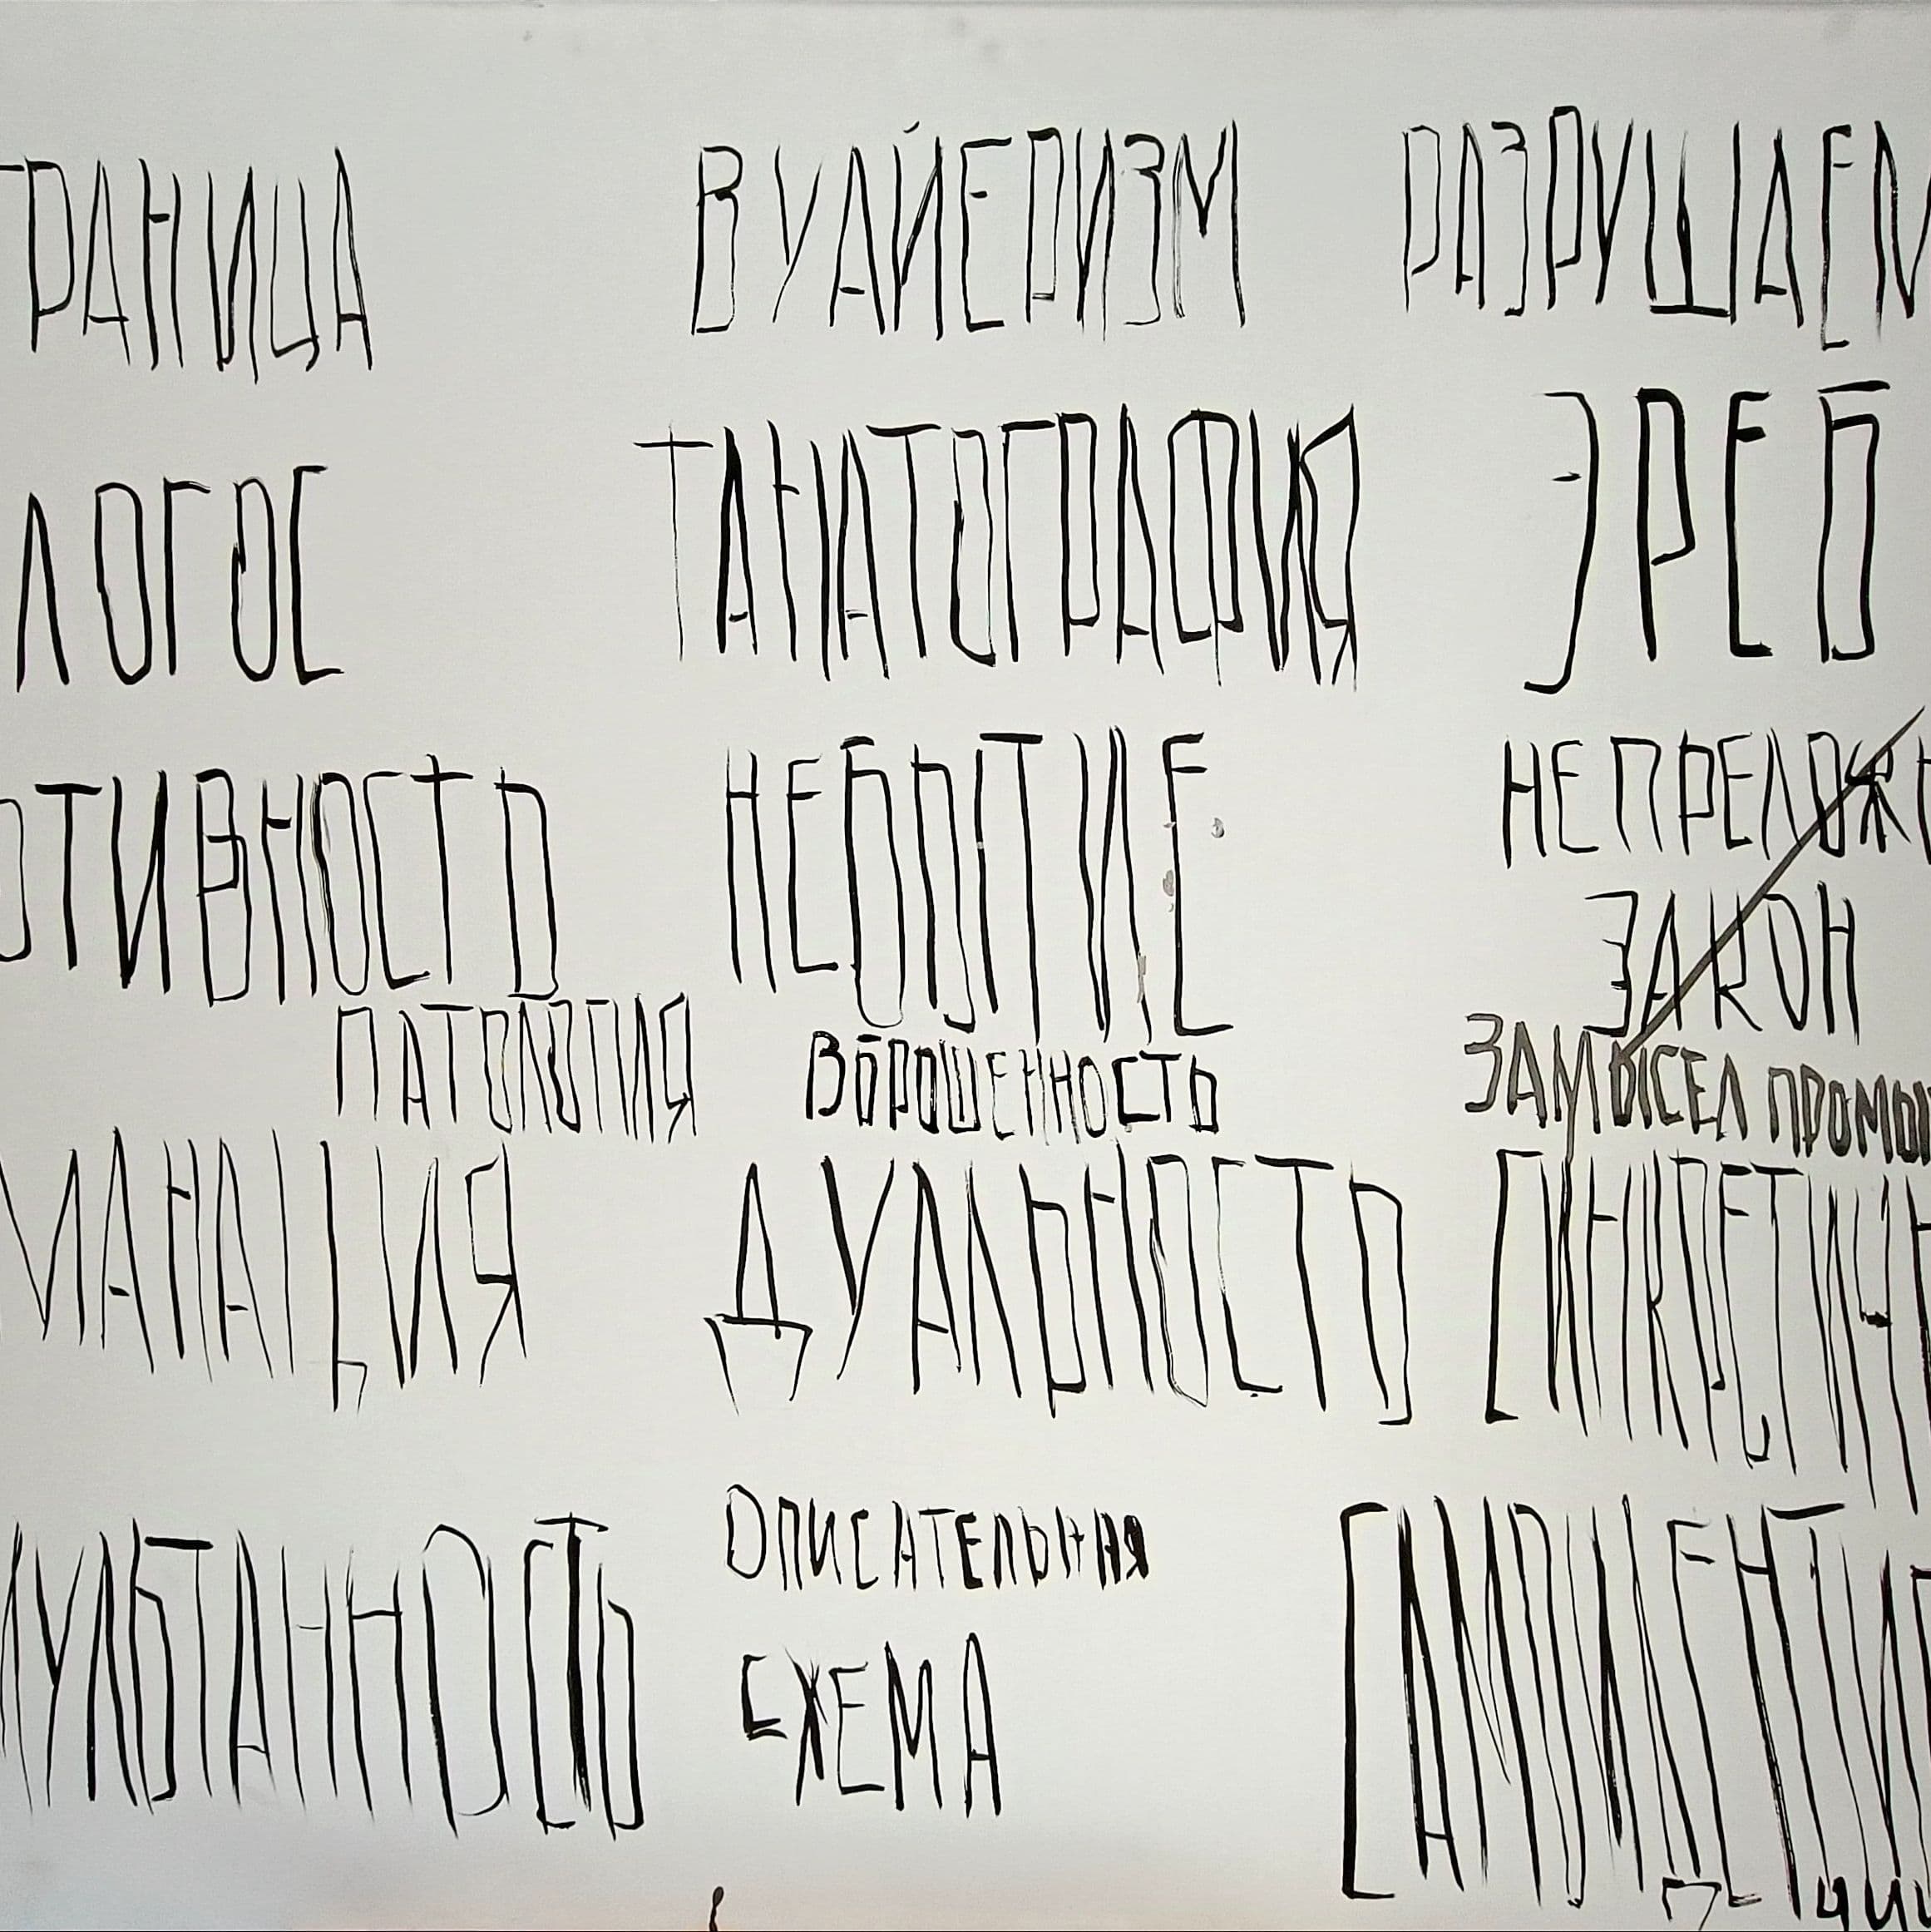 ГРАНИЦА ВУАЙЕРИЗМ РАЗРУШАЕМ
ЛОГОС ТАНАТОГРАФИЯ ЭРЕБ
ОТИВНОСТЬ НЕБЫТИЕ НЕПРЕЛОЖН
ЗАКОН
ПАТОЛОГИЯ ВБРОШЕННОСТЬ ЗАМЫСЕЛ ПРОМЫ
МАНАЦИЯ ДУАЛЬНОСТЬ СИНКРЕТИЧН
МУЛЬТАННОСТЬ ОПИСАТЕЛЬНАЯ САМОИДЕНТИ
СХЕМА